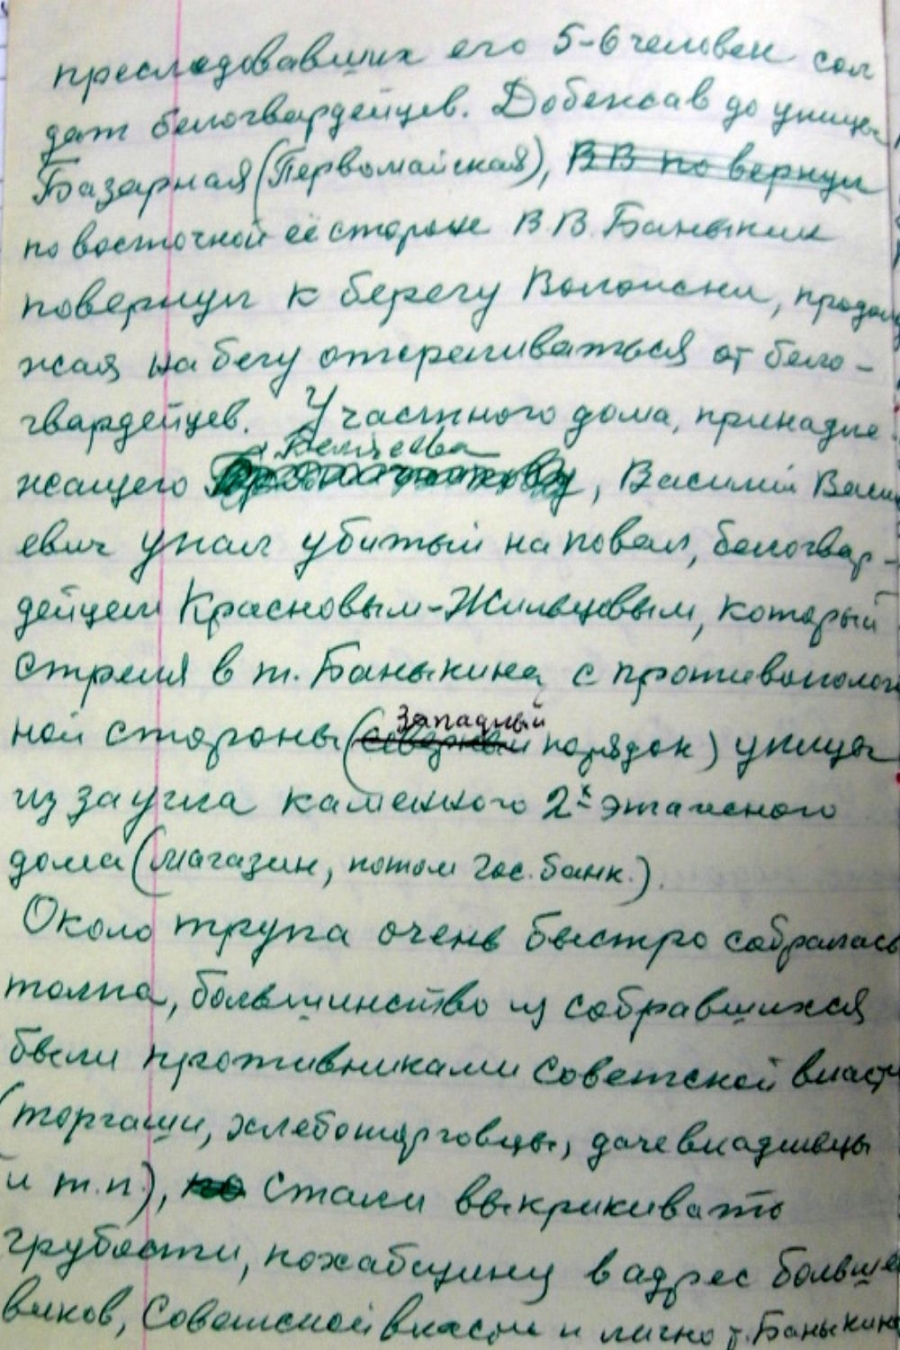 преследовавших его 5-6 человек сол
дат белогвардейцев. Добежав до улицы
Базарная (Первомайская), ВВ повернул
по восточной её стороне В.В. Баныкин
повернул к берегу Воложки, продол
жая на бегу отстреливаться от бело-
гвардейцев. У частного дома, принадле-
жащего Василий Васил
евич упал убитый наповал, белогвар-
дейцем Красновым-Жильцовым, который
стрелял в т. Баныкина, с противополож
ной стороны (северный Западный порядок) улицы
из за угла каменного 2х этажного
дома (магазин, потом гос. банк.).
Около трупа очень быстро собралась
толпа, большинство из собравшихся
были противниками советской власти
(торгаши, хлеботорговцы, дачевладельцы
и т.п.), но стали выкрикивать
грубости, похабщину в адрес больше
виков, Советской власти и лично т. Баныкина